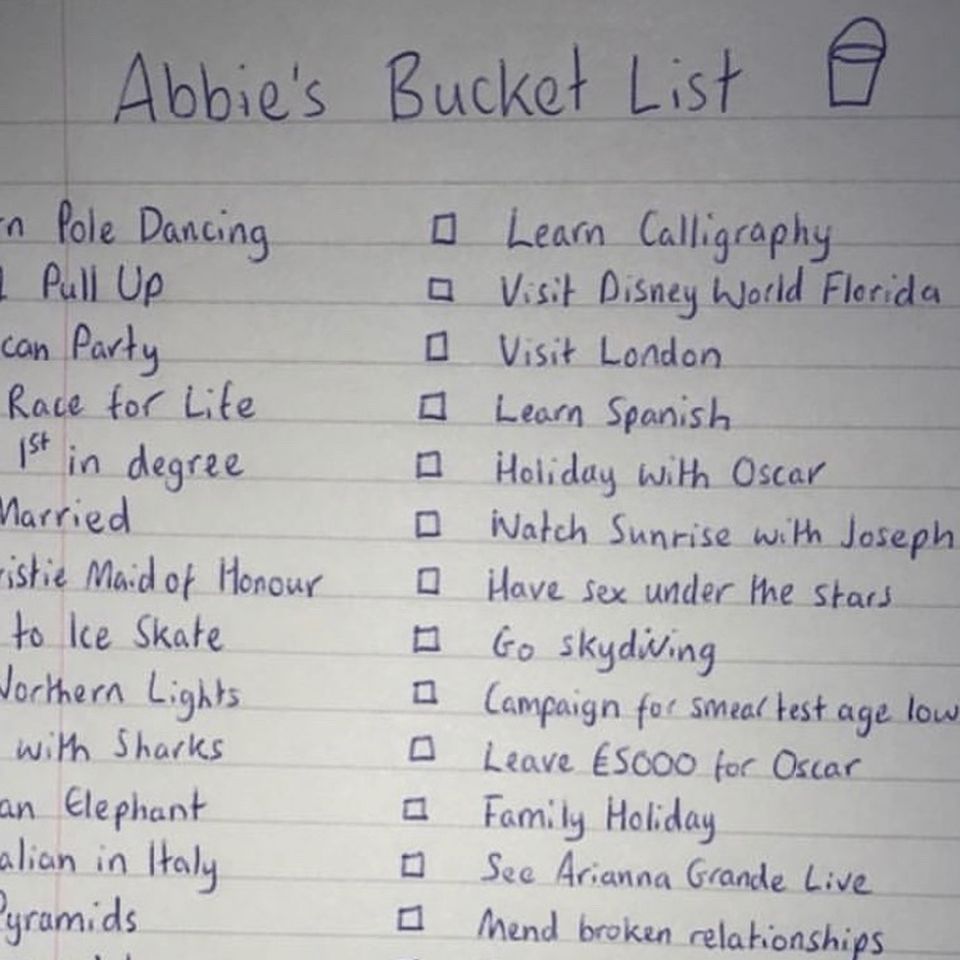 Abbie's Bucket List
Pole Dancing
Pull Up
Party
Race for Life
1st in degree
Married
Maid of Honour
to Ice Skate
Northern Lights
with Sharks
an Elephant
in Italy
Pyramids
Learn Calligraphy
Visit Disney World Florida
Visit London
Learn Spanish
Holiday with Oscar
Watch Sunrise with Joseph
Have sex under the stars
Go skydiving
Campaign for smear test age low
Leave £5000 for Oscar
Family Holiday
See Arianna Grande Live
Mend broken relationships